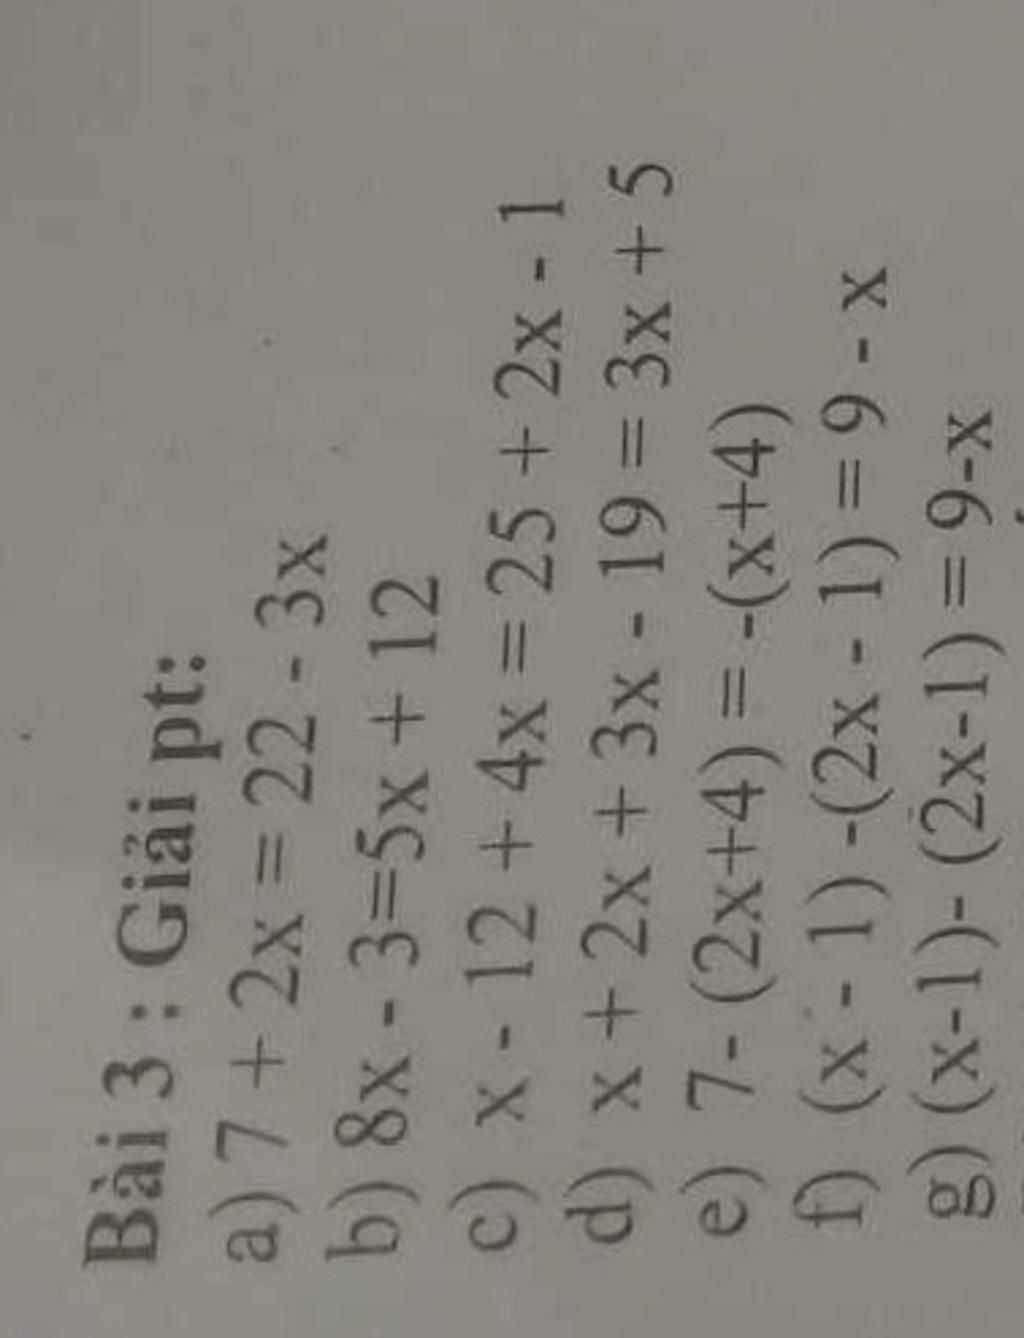 Bài 3 : Giải pt:
a) 7 + 2x = 22 - 3x
b) 8x - 3=5x + 12
c) x - 12 + 4x = 25 + 2x - 1
d) x + 2x + 3x - 19 = 3x + 5
e) 7- (2x+4) = -(x+4)
f) (x - 1) -(2x - 1) = 9 - x
g) (x-1)- (2x-1) = 9-x